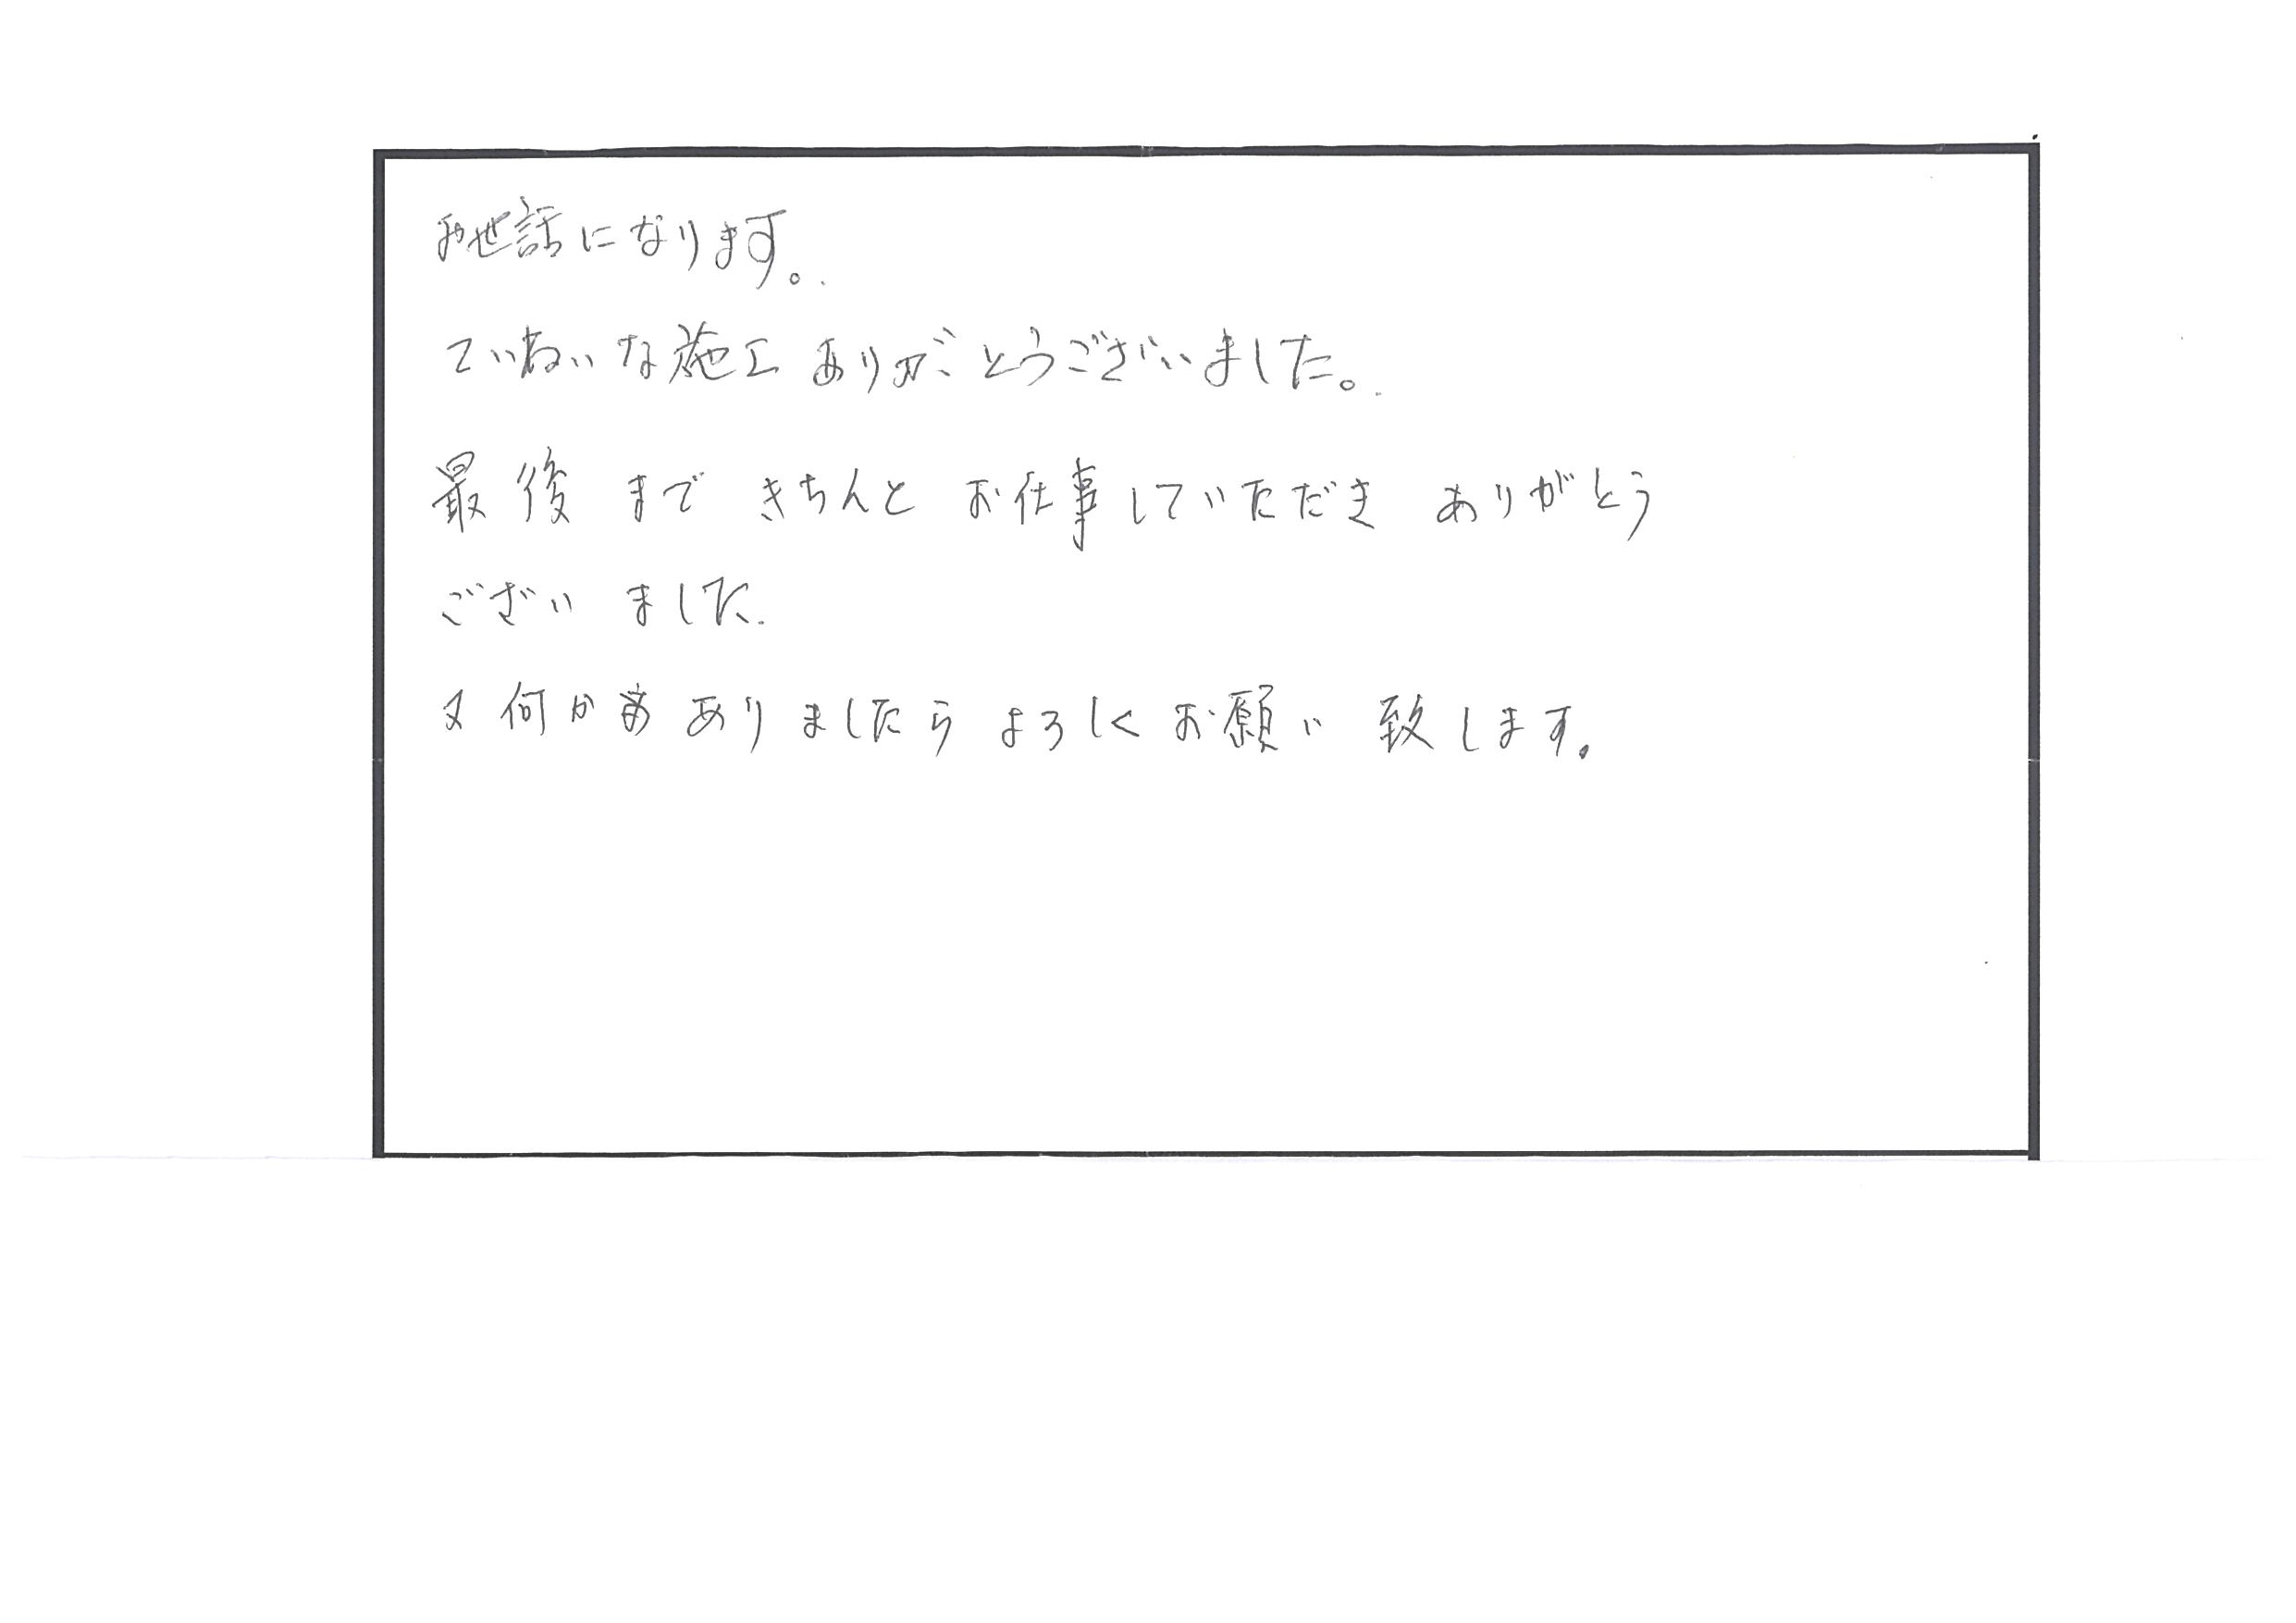 お世話になります。
ていねいな施工ありがとうございました。
最後まできちんとお仕事していただきありがとう
ございました.
又何かありましたらよろしくお願い致します。